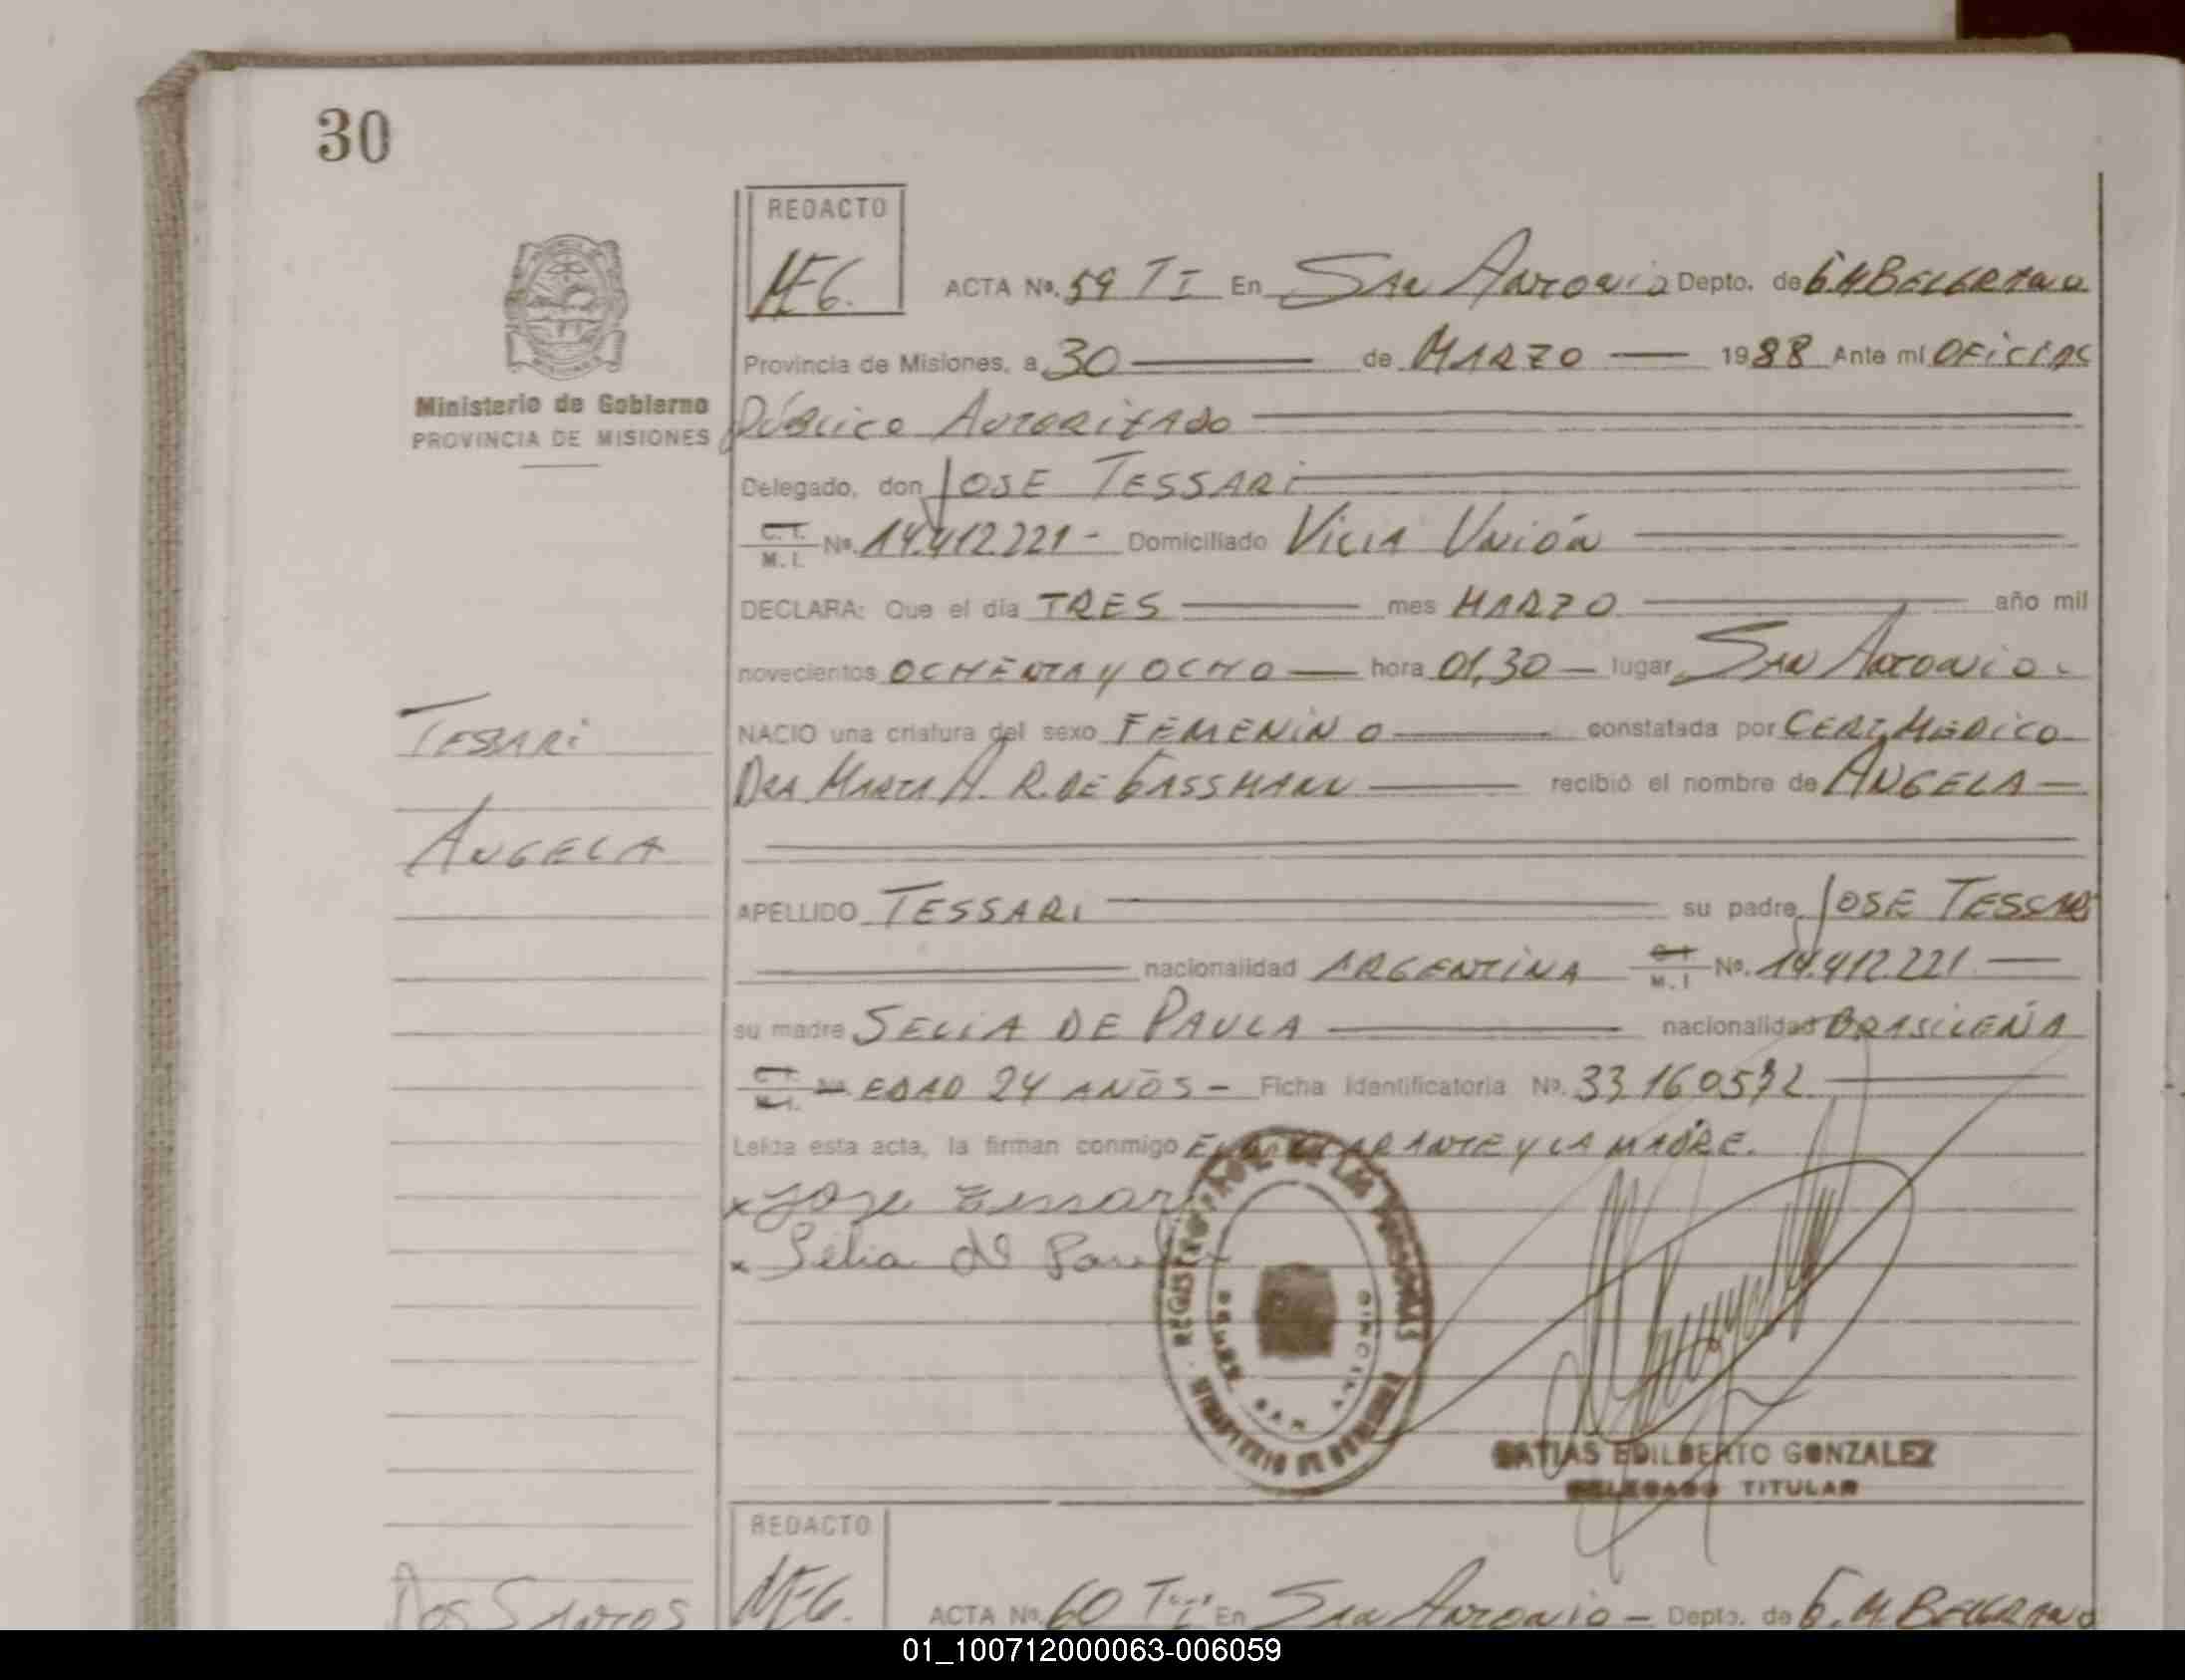 30
REDACTO
MEG.
ACTA Nº. 59 TI En San Antonio Depto. de G.M.Belgrano
Provincia de Misiones, a 30 de MARZO 1988 Ante mí OFICIAL
Público Autorizado
Ministerio de Gobierno
PROVINCIA DE MISIONES
Delegado, don JOSE TESSARI
C.I. M.I. Nº. 14.412.221 - Domiciliado Villa Unión
DECLARA: Que el día TRES mes MARZO año mil
novecientos OCHENTA y OCHO hora 01,30 lugar San Antonio.
NACIO una criatura del sexo FEMENINO constatada por CERT. MEDICO
DRA. MARTA A. R. DE GASSMANN recibió el nombre de ANGELA
TESSARI
ANGELA
APELLIDO TESSARI su padre JOSE TESSARI
nacionalidad ARGENTINA C.I. M.I Nº. 14.412.221
su madre SELIA DE PAULA nacionalidad BRASILEÑA
C.I. M.I. Nº EDAD 24 AÑOS - Ficha Identificatoria Nº. 33.160572
Leída esta acta, la firman conmigo EL DECLARANTE y LA MADRE.
x Jose Tessari
x Selia de Paula
MATIAS EDILBERTO GONZALEZ
DELEGADO TITULAR
REDACTO
MEG.
DOS SANTOS
ACTA Nº. 60 TI En San Antonio - Depto. de G.M.Belgrano
01_100712000063-006059